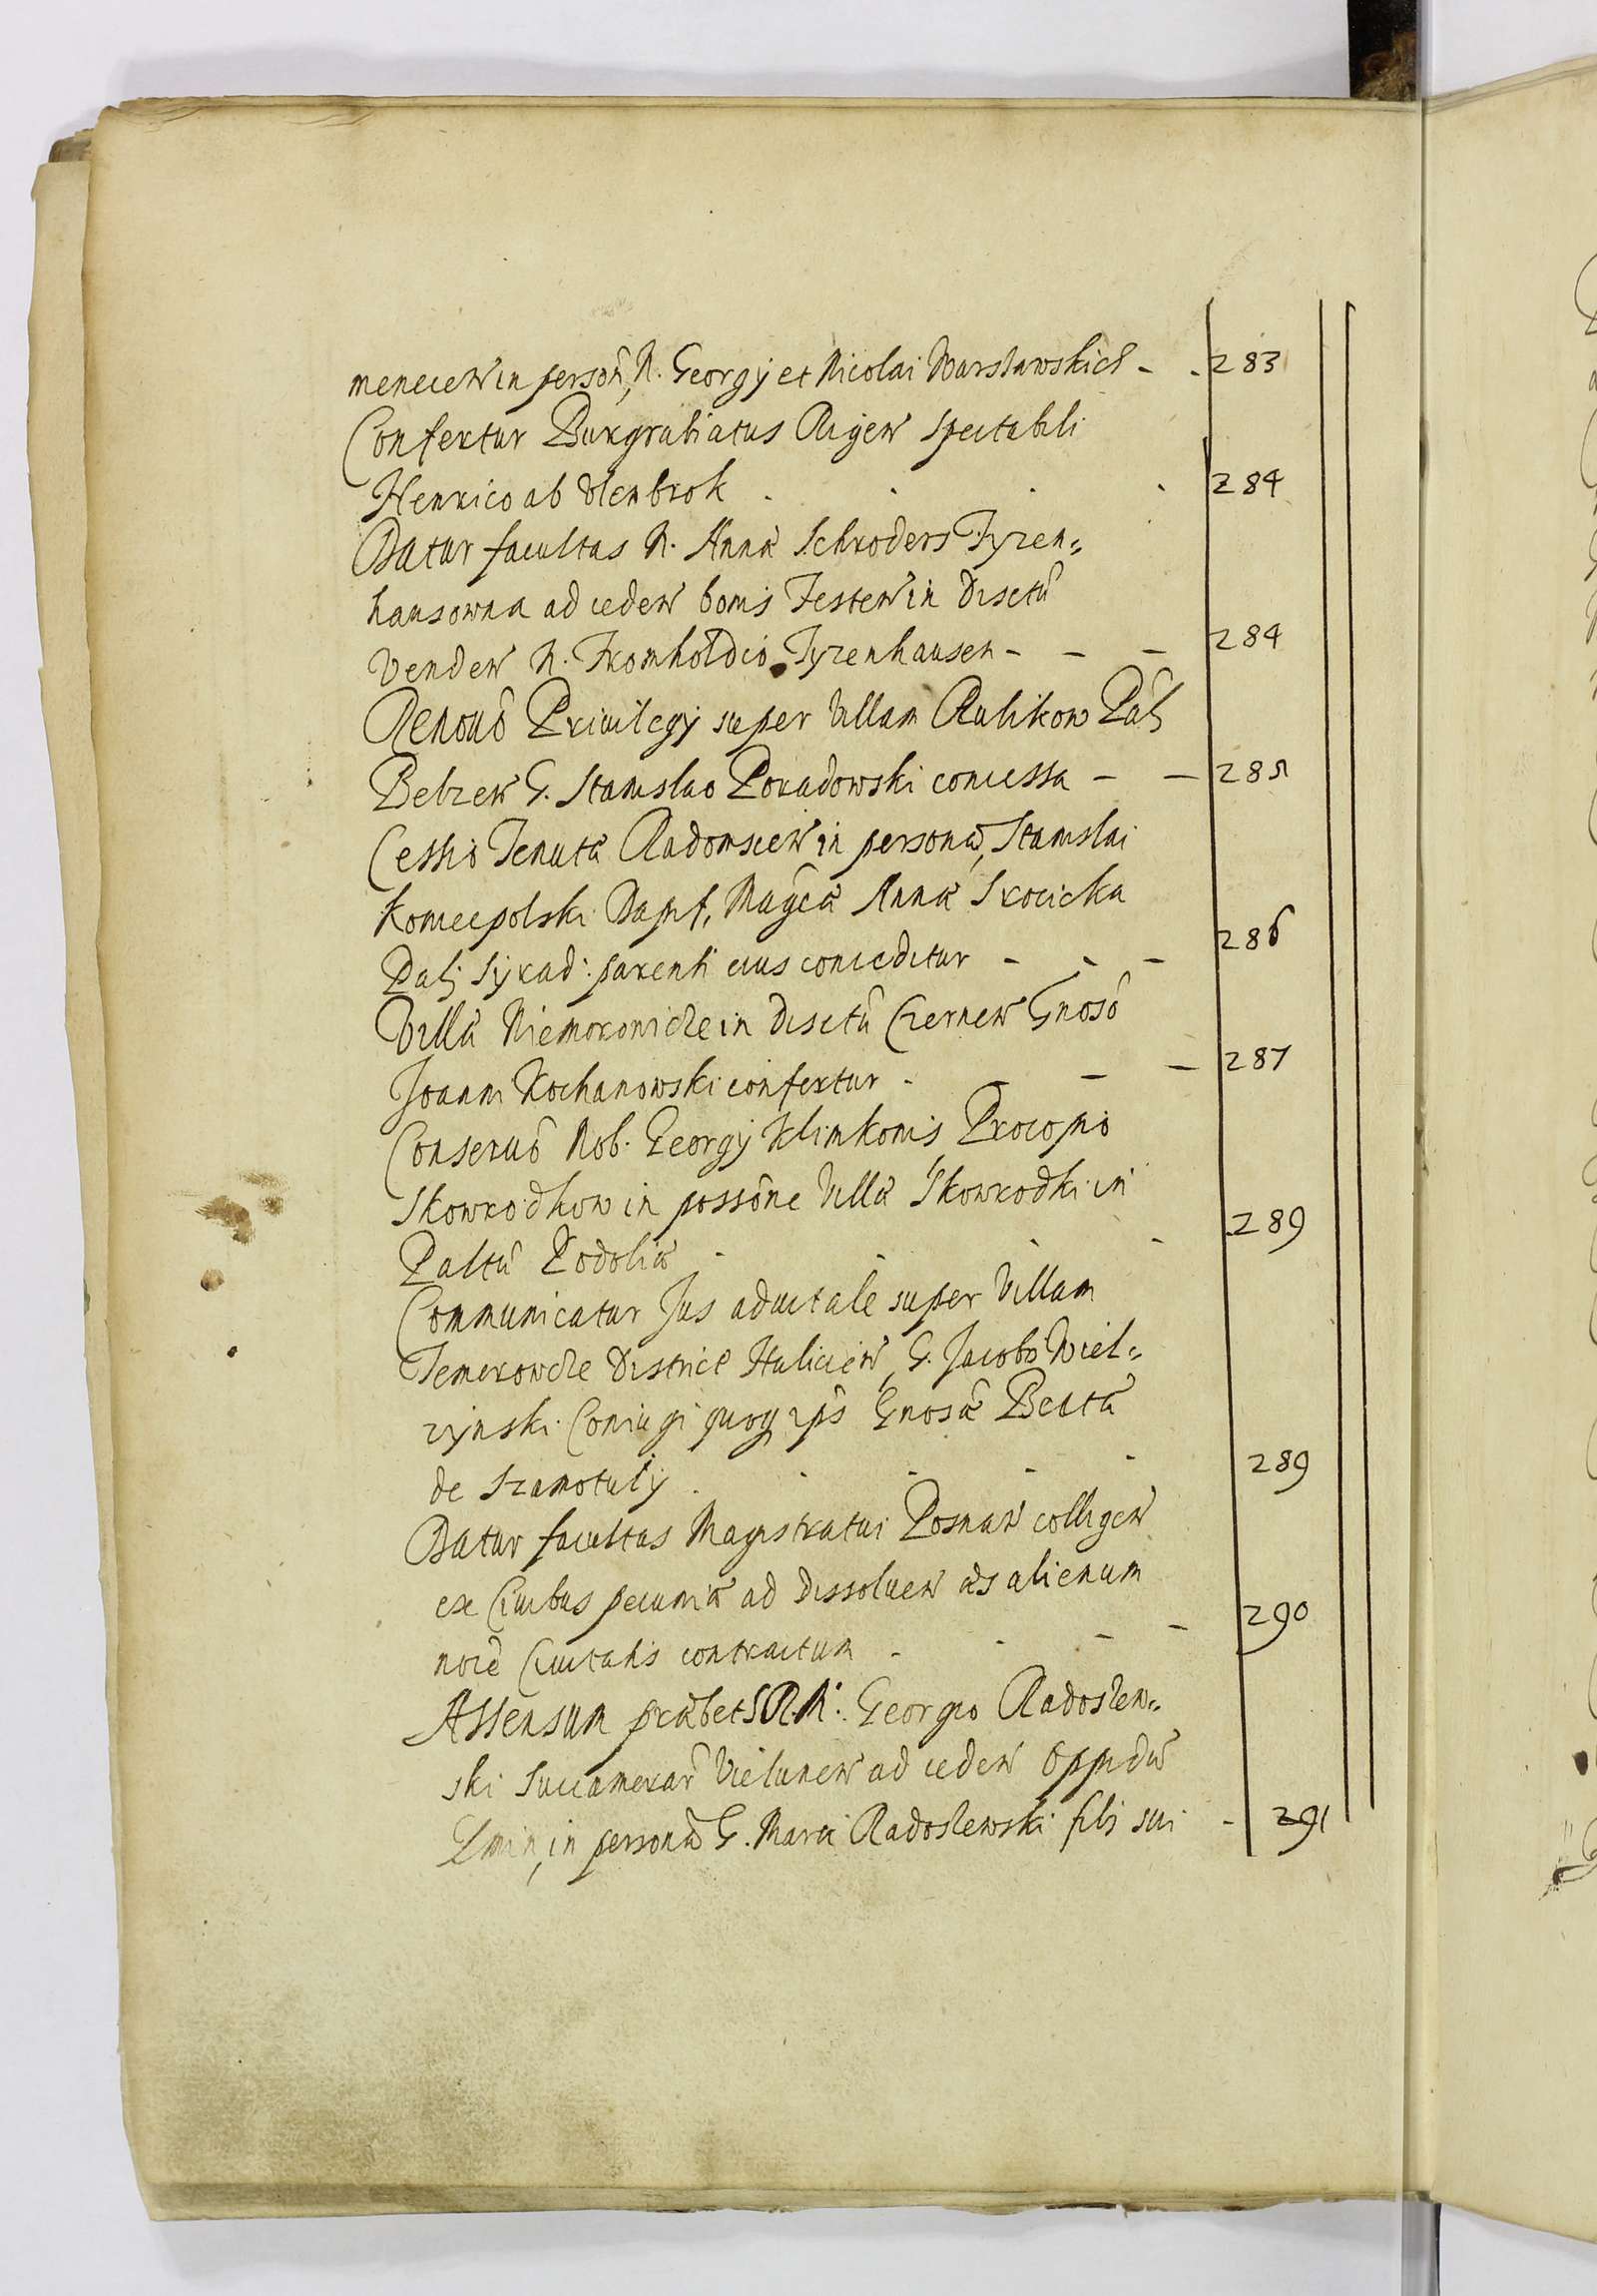 menecen in person, N. Georgij et Nicolai Warszawskich - - 283
Confertur Burgrabiatus Rigen spectabili
Henrico ab Vlenbrok . . . . 284
Datur facultas N. Annæ Schroders Tyzen=
hausowna ad ceden bonis Festen in Disctu
Venden N. Fromholdio Tyzenhausen - - - 284
Renouõ Priuilegij super Villam Rulikow Pal
Belzen G. Stanislao Poradowski concessa - - 285
Cessio Tenutæ Radomscen in persona Stanislai
Koniecpolski Dapif, Magcæ Annæ Srocicka
Pal Syrad: parenti eius conceditur - - - 286
Villa Niemoronicze in Disctu Czernen Gnoso
Joanni Kochanowski confertur - - - 287
Conseruõ Nob. Georgij Klimkonis Procopio
Skowrodkow in possone Villæ Skowrodki in
Paltu Podoliæ . . . . 289
Communicatur Jus aduitale super Villam
Temerowcze District Halicien, G. Jacobo Wiel=
zynski Coniugi quoq ips Gnosæ Beatæ
de Szamotuly . . . . . 289
Datur facultas Magistratui Posnan colligen
ex Ciuibus pecuniæ ad dissoluen æs alienum
noie Ciuitatis contractum - - - - 290
Assensum præbet S.R.M: Georgio Radoszew=
ski Succamerar Vielunen ad ceden Oppidu
in persona G. Marci Radoszewski filij sui - 291